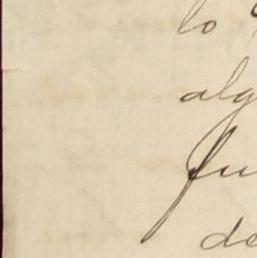 lo
alg
fu
de